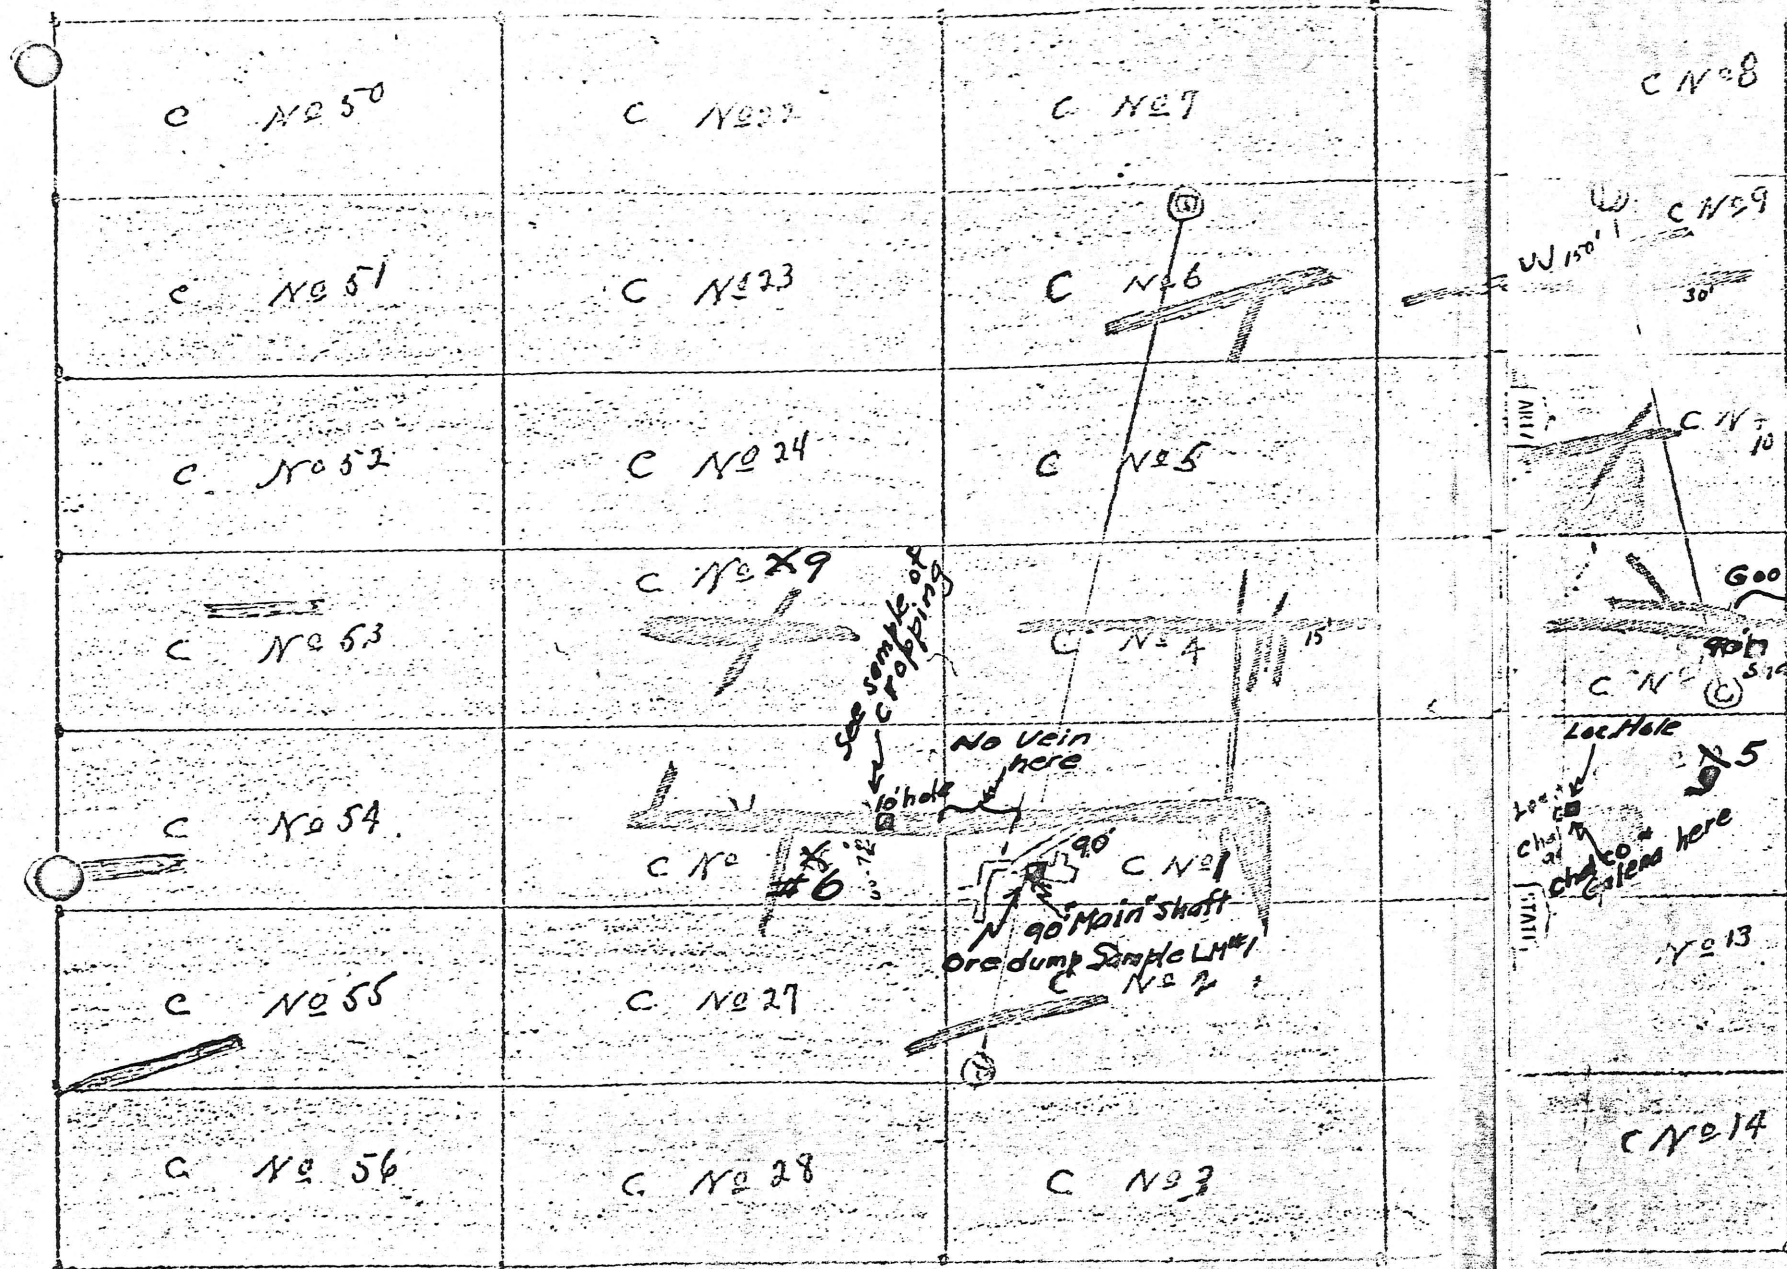 C No 50
C No 22
C No 7
C No 8
C No 51
C No 23
C No 6
W 150'
C No 9
30'
C No 52
C No 24
C No 5
C N
10
C No 53
C No X9
See sample of
cropping
C No 4
15'
Goo
90'
C No
C
C No 54
10' hole
No Vein
here
Loc. Hole
X 5
C No X
#6
90'
C No 1
90' "Main" Shaft
Ore dump Sample LM#1
Loc.
Chalco &
Galena here
STATE
C No 55
C No 27
C No 2
No 13
C No 56
C No 28
C No 3
C No 14